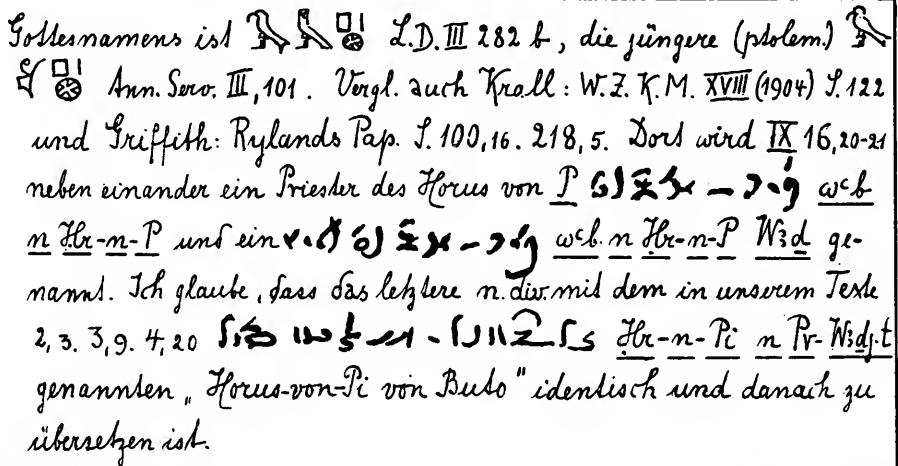 Gottesnamens ist L.D. III 282 b, die jüngere (ptolem.)
Ann. Serv. III, 101. Vergl. auch Krall: W.Z.K.M. XVIII (1904) S. 122
und Griffith: Rylands Pap. S. 100,16. 218,5. Dort wird IX 16,20-21
neben einander ein Priester des Horus von P wꜥb
n Ḥr-n-P und ein wꜥb n Ḥr-n-P Wꜣḏ ge-
nannt. Ich glaube, dass das letztere n. div. mit dem in unserem Texte
2,3. 3,9. 4,20 Ḥr-n-Pi n Pr-Wꜣḏj.t
genannten „Horus-von-Pi von Buto" identisch und danach zu
übersetzen ist.